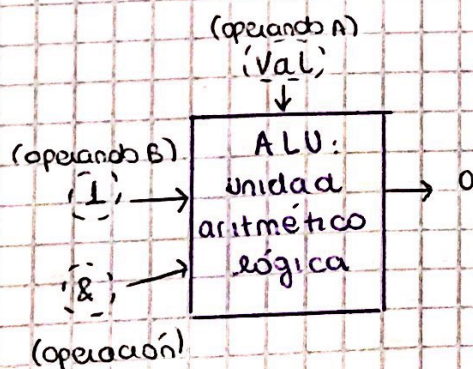 (operando A)
val
(operando B)
1
ALU:
unidad
aritmético
lógica
0
&
(operación)